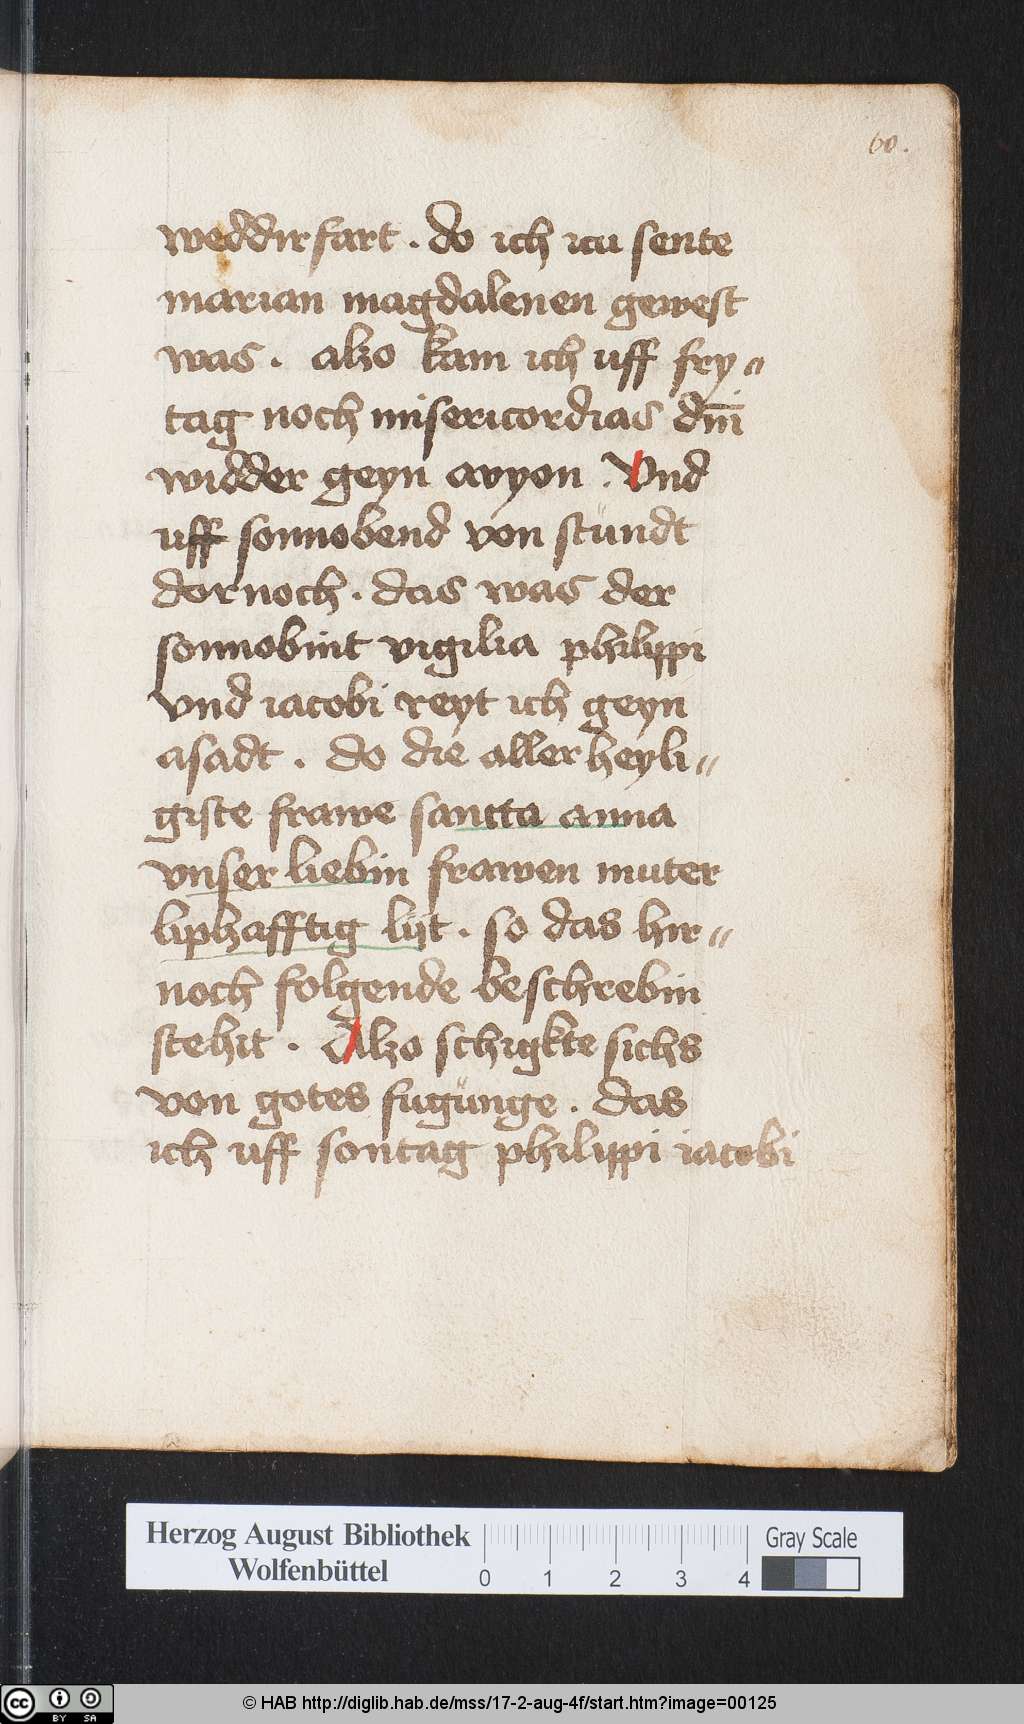 60.
weddirfart . do ich icu sente
marian magdalenen gewest
was . alzo kam ich uff fry〃
tag noch misericordias dm̄
widder geyn avyon . Vnd
uff sonnobend von stündt
dornoch . das was der
sonnobint vigilia philippi
vnd iacobi reyt ich geyn
asadt . do die allerheyli〃
giste frawe sancta anna
vnser liebin frawen muter
liphafftig lijt . so das hir〃
noch folgende beschrebin
stehit . Alzo schigkte sichs
von gotes fugünge . das
ich uff sontag philippi iacobi
Herzog August Bibliothek
Wolfenbüttel
0 1 2 3 4
Gray Scale
cc BY SA
© HAB http://diglib.hab.de/mss/17-2-aug-4f/start.htm?image=00125